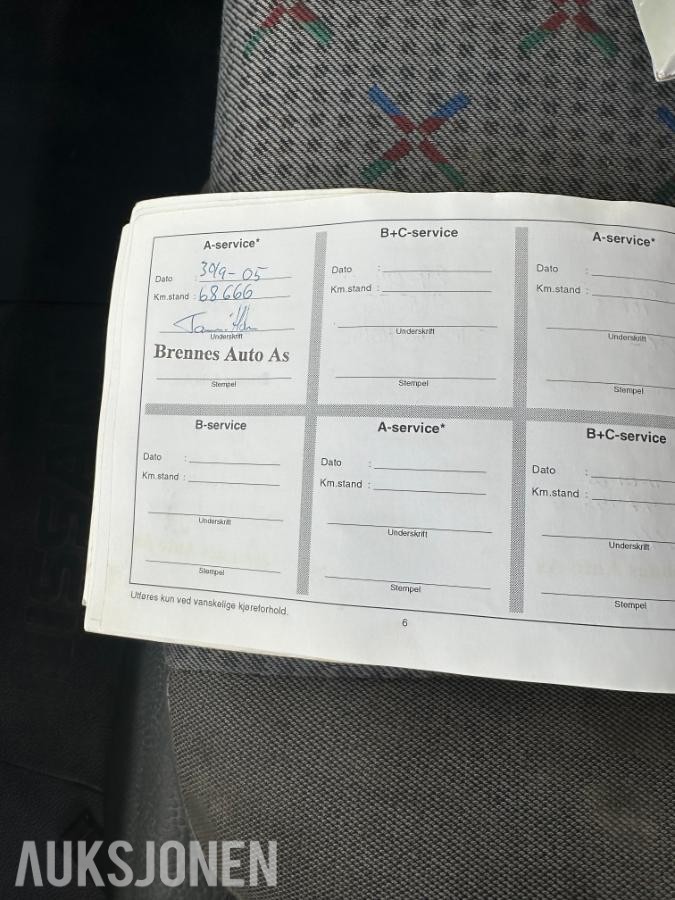 A-service*
Dato : 30/9-05
Km.stand : 68666
Underskrift
Brennes Auto As
Stempel
B+C-service
Dato :
Km.stand :
Underskrift
Stempel
A-service*
Dato :
Km.stand :
Underskrift
Stempel
B-service
Dato :
Km.stand :
Underskrift
Stempel
A-service*
Dato :
Km.stand :
Underskrift
Stempel
B+C-service
Dato :
Km.stand :
Underskrift
Stempel
Utføres kun ved vanskelige kjøreforhold.
6
AUKSJONEN